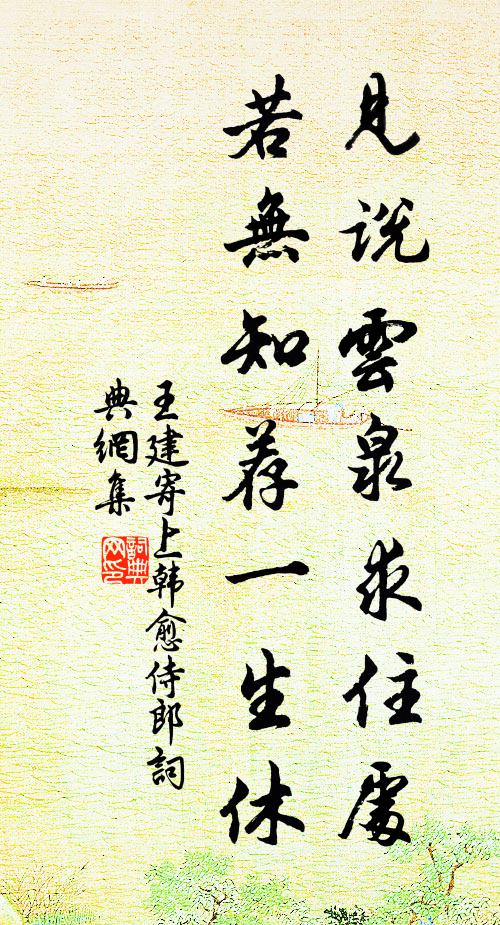 見説雲泉求住處
若無知荐一生休
王建寄上韩愈侍郎詞
典網集
詞典
网印